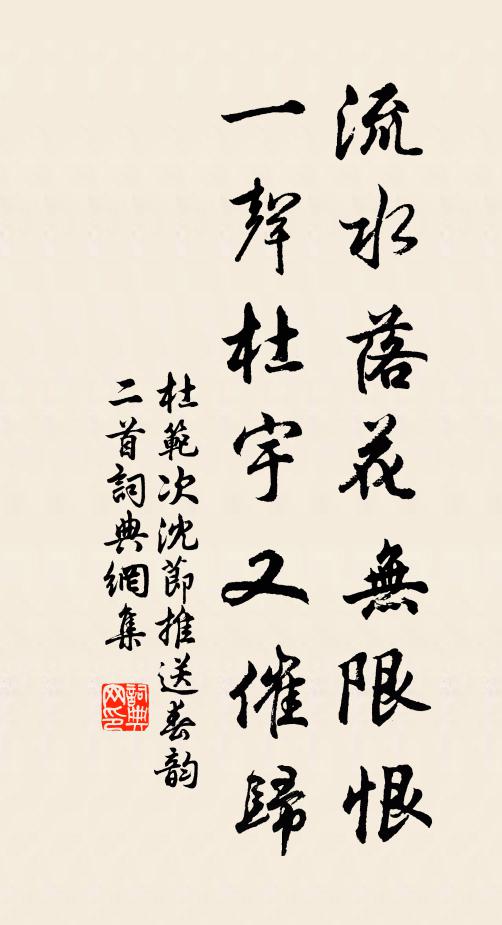 流水落花無限恨
一聲杜宇又催歸
杜範次沈節推送春韵
二首詞典網集
詞典
网印